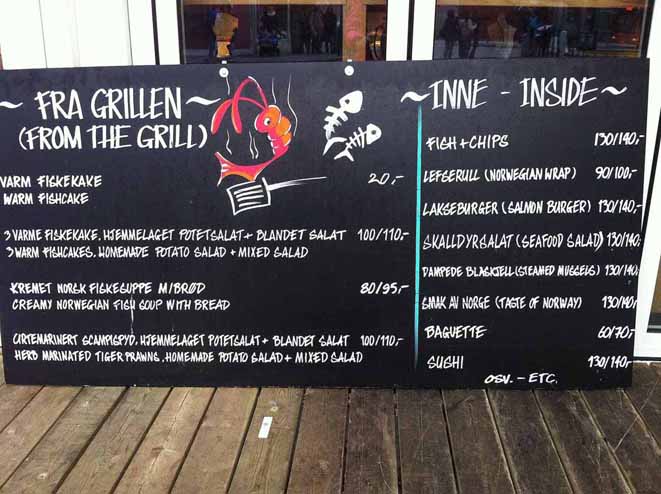 ~ FRA GRILLEN ~
(FROM THE GRILL)
VARM FISKEKAKE 20,-
WARM FISHCAKE
3 VARME FISKEKAKE, HJEMMELAGET POTETSALAT + BLANDET SALAT 100/110,-
3 WARM FISHCAKES, HOMEMADE POTATO SALAD + MIXED SALAD
KREMET NORSK FISKESUPPE M/BRØD 80/95,-
CREAMY NORWEGIAN FISH SOUP WITH BREAD
URTEMARINERT SCAMPISPYD, HJEMMELAGET POTETSALAT + BLANDET SALAT 100/110,-
HERB MARINATED TIGER PRAWNS, HOMEMADE POTATO SALAD + MIXED SALAD
~ INNE - INSIDE ~
FISH + CHIPS 130/140,-
LEFSERULL (NORWEGIAN WRAP) 90/100,-
LAKSEBURGER (SALMON BURGER) 130/140,-
SKALLDYRSALAT (SEAFOOD SALAD) 130/140,-
DAMPEDE BLÅSKJELL (STEAMED MUSSELS) 130/140,-
SMAK AV NORGE (TASTE OF NORWAY) 130/140,-
BAGUETTE 60/70,-
SUSHI 130/140,-
OSV. - ETC.